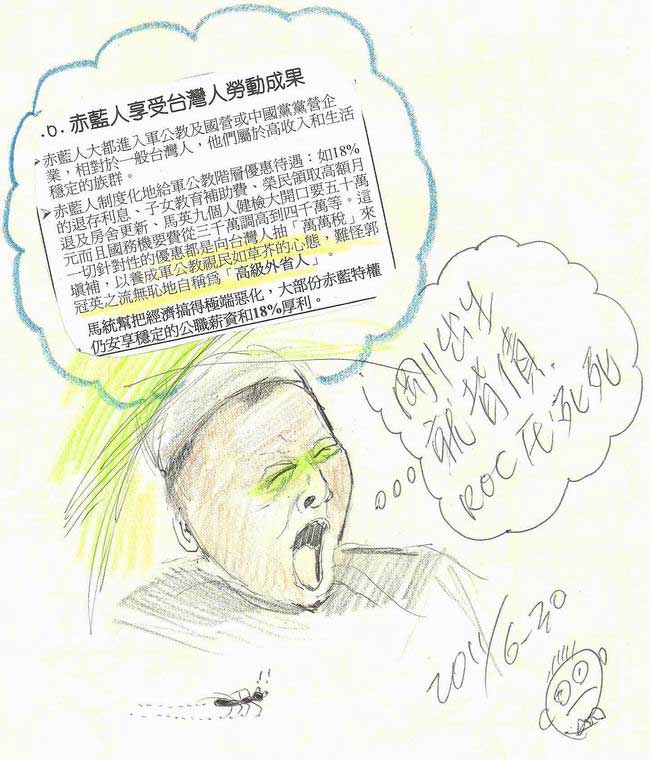 .b. 赤藍人享受台灣人勞動成果
➢赤藍人大都進入軍公教及國營或中國黨黨營企
業，相對於一般台灣人，他們屬於高收入和生活
穩定的族群。
➢赤藍人制度化地給軍公教階層優惠待遇：如18%
的退存利息、子女教育補助費、榮民領取高額月
退及房舍更新、馬英九個人健檢大開口要五十萬
元而且國務機要費從三千萬調高到四千萬等。這
一切針對性的優惠都是向台灣人抽「萬萬稅」來
填補，以養成軍公教視民如草芥的心態，難怪郭
冠英之流無恥地自稱為「高級外省人」。
馬統幫把經濟搞得極端惡化，大部份赤藍特權
仍安享穩定的公職薪資和18%厚利。
剛出生
就背債.
ROC 死死
2011/6-20